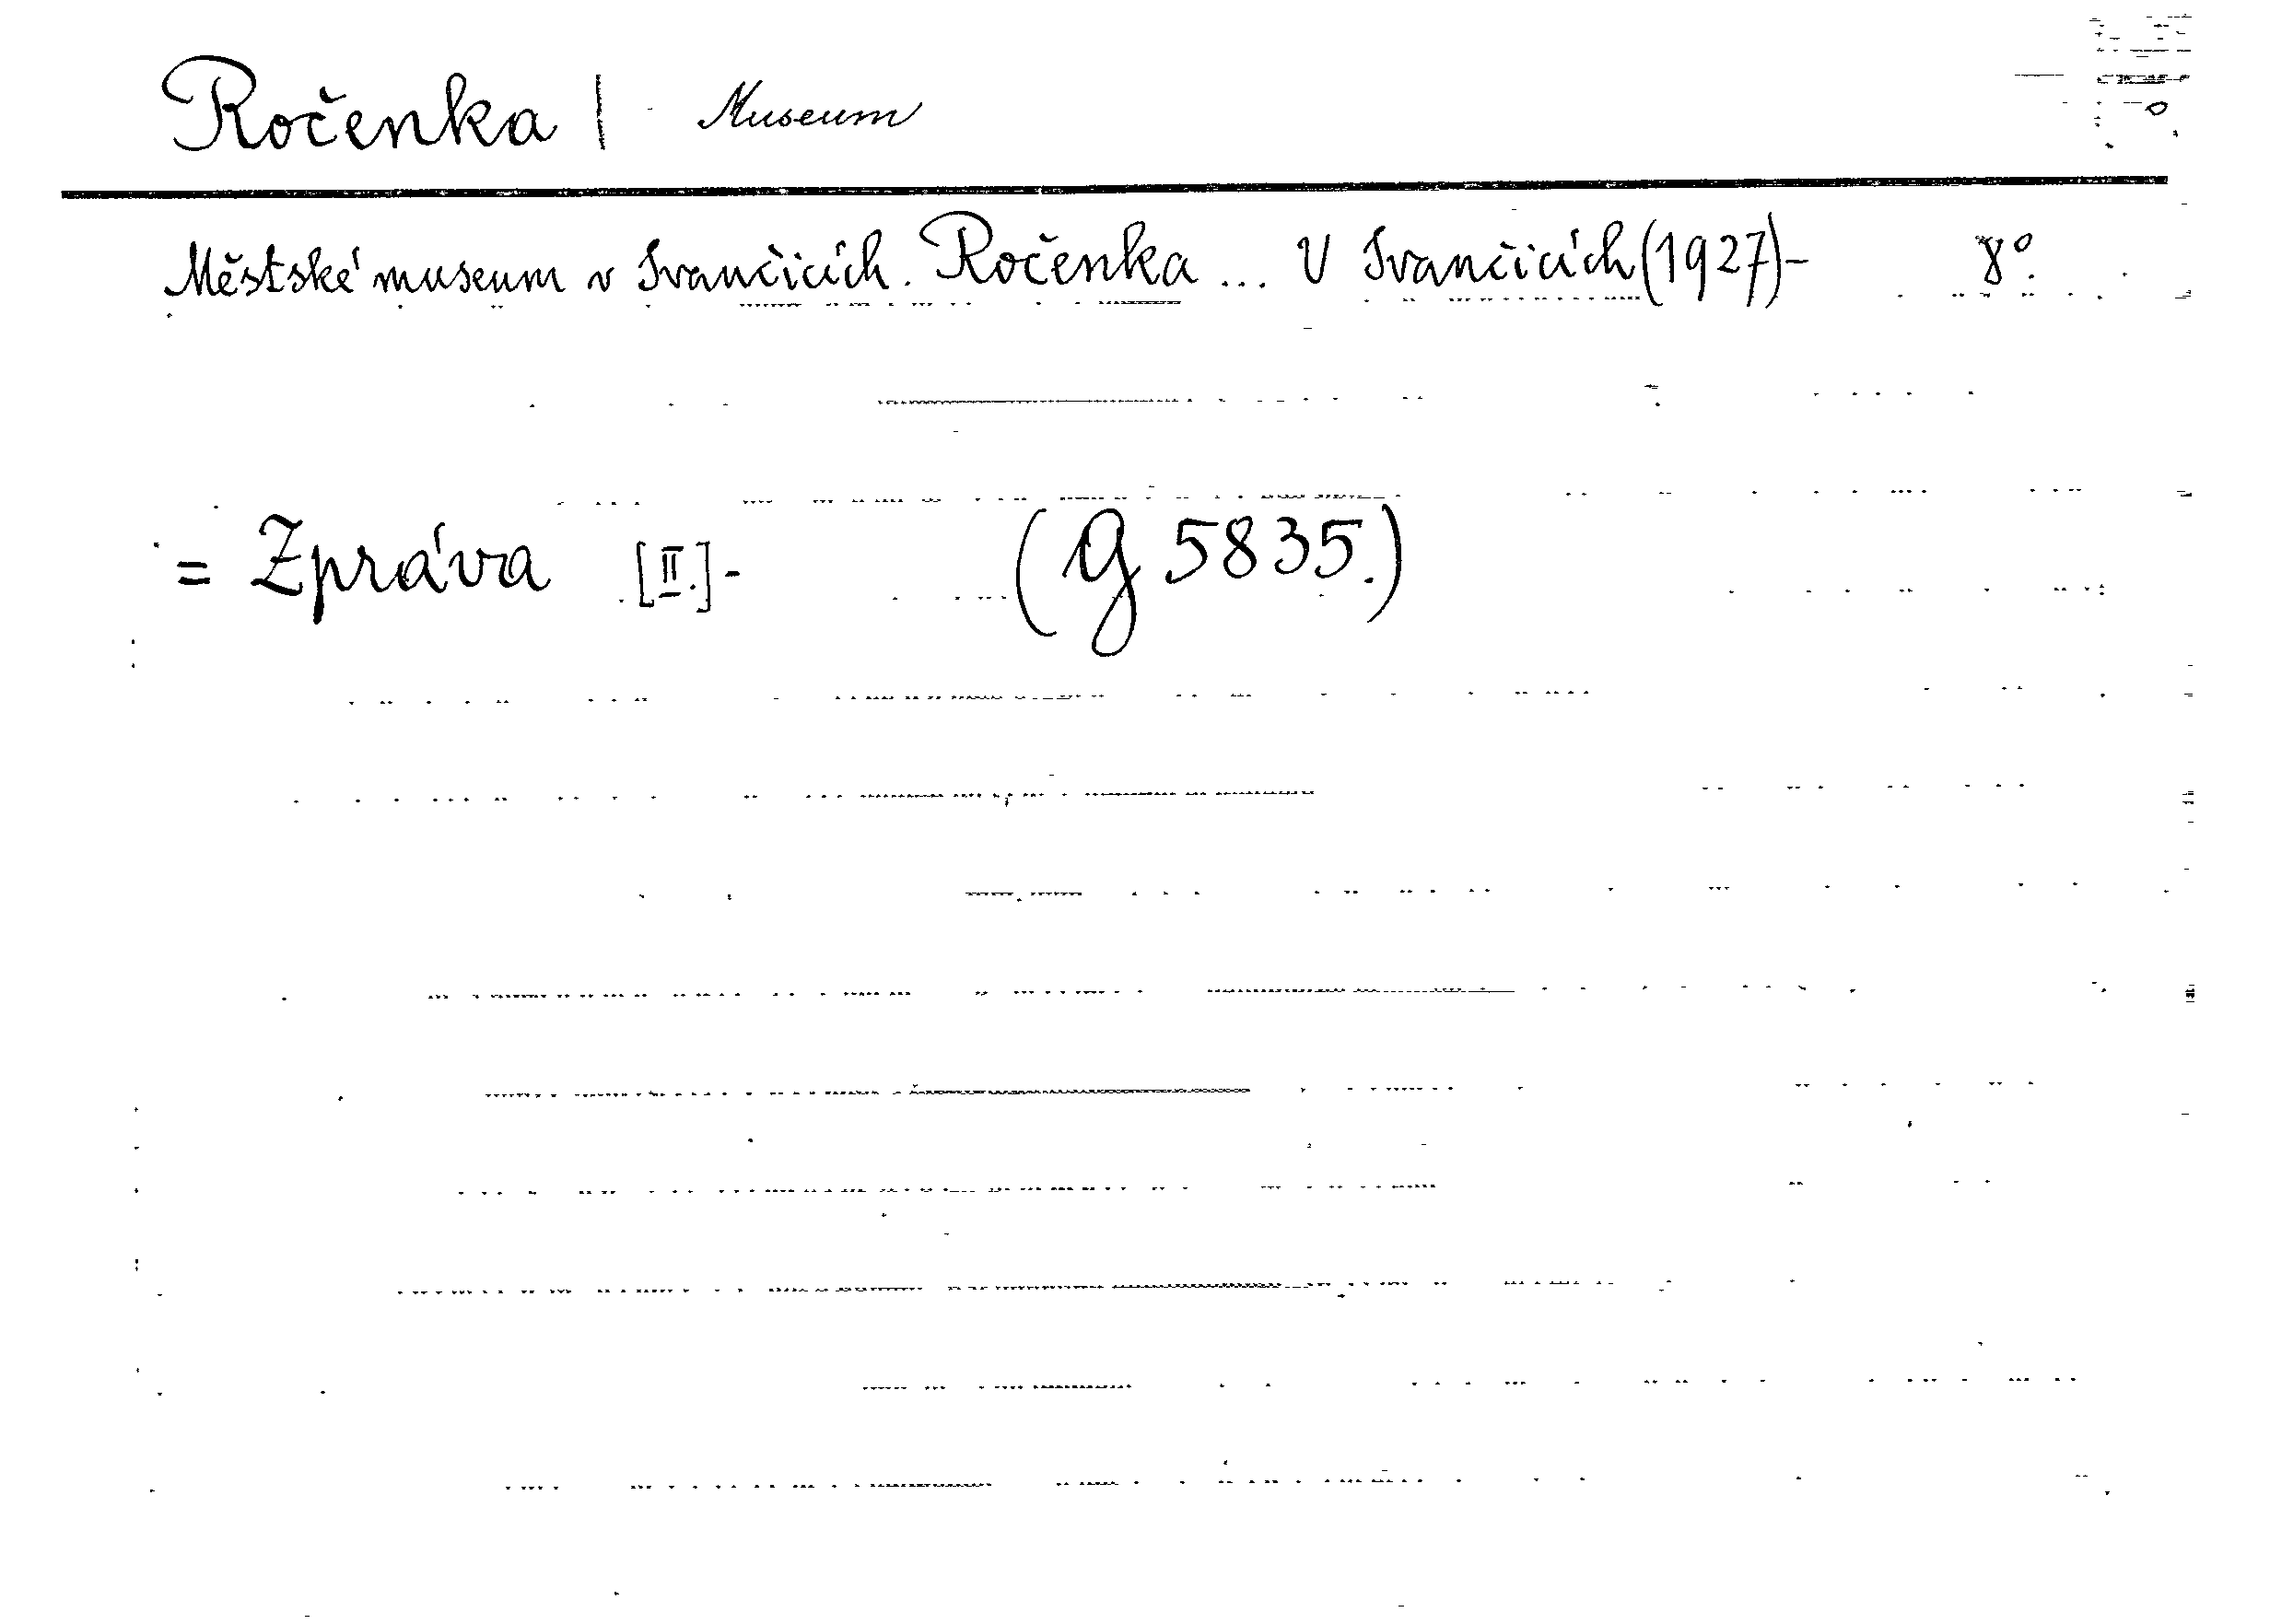 Ročenka | Museum
Městské museum v Ivančicích. Ročenka ... V Ivančicích (1927)- 8°.
= Zpráva [II.]- (G 5835.)